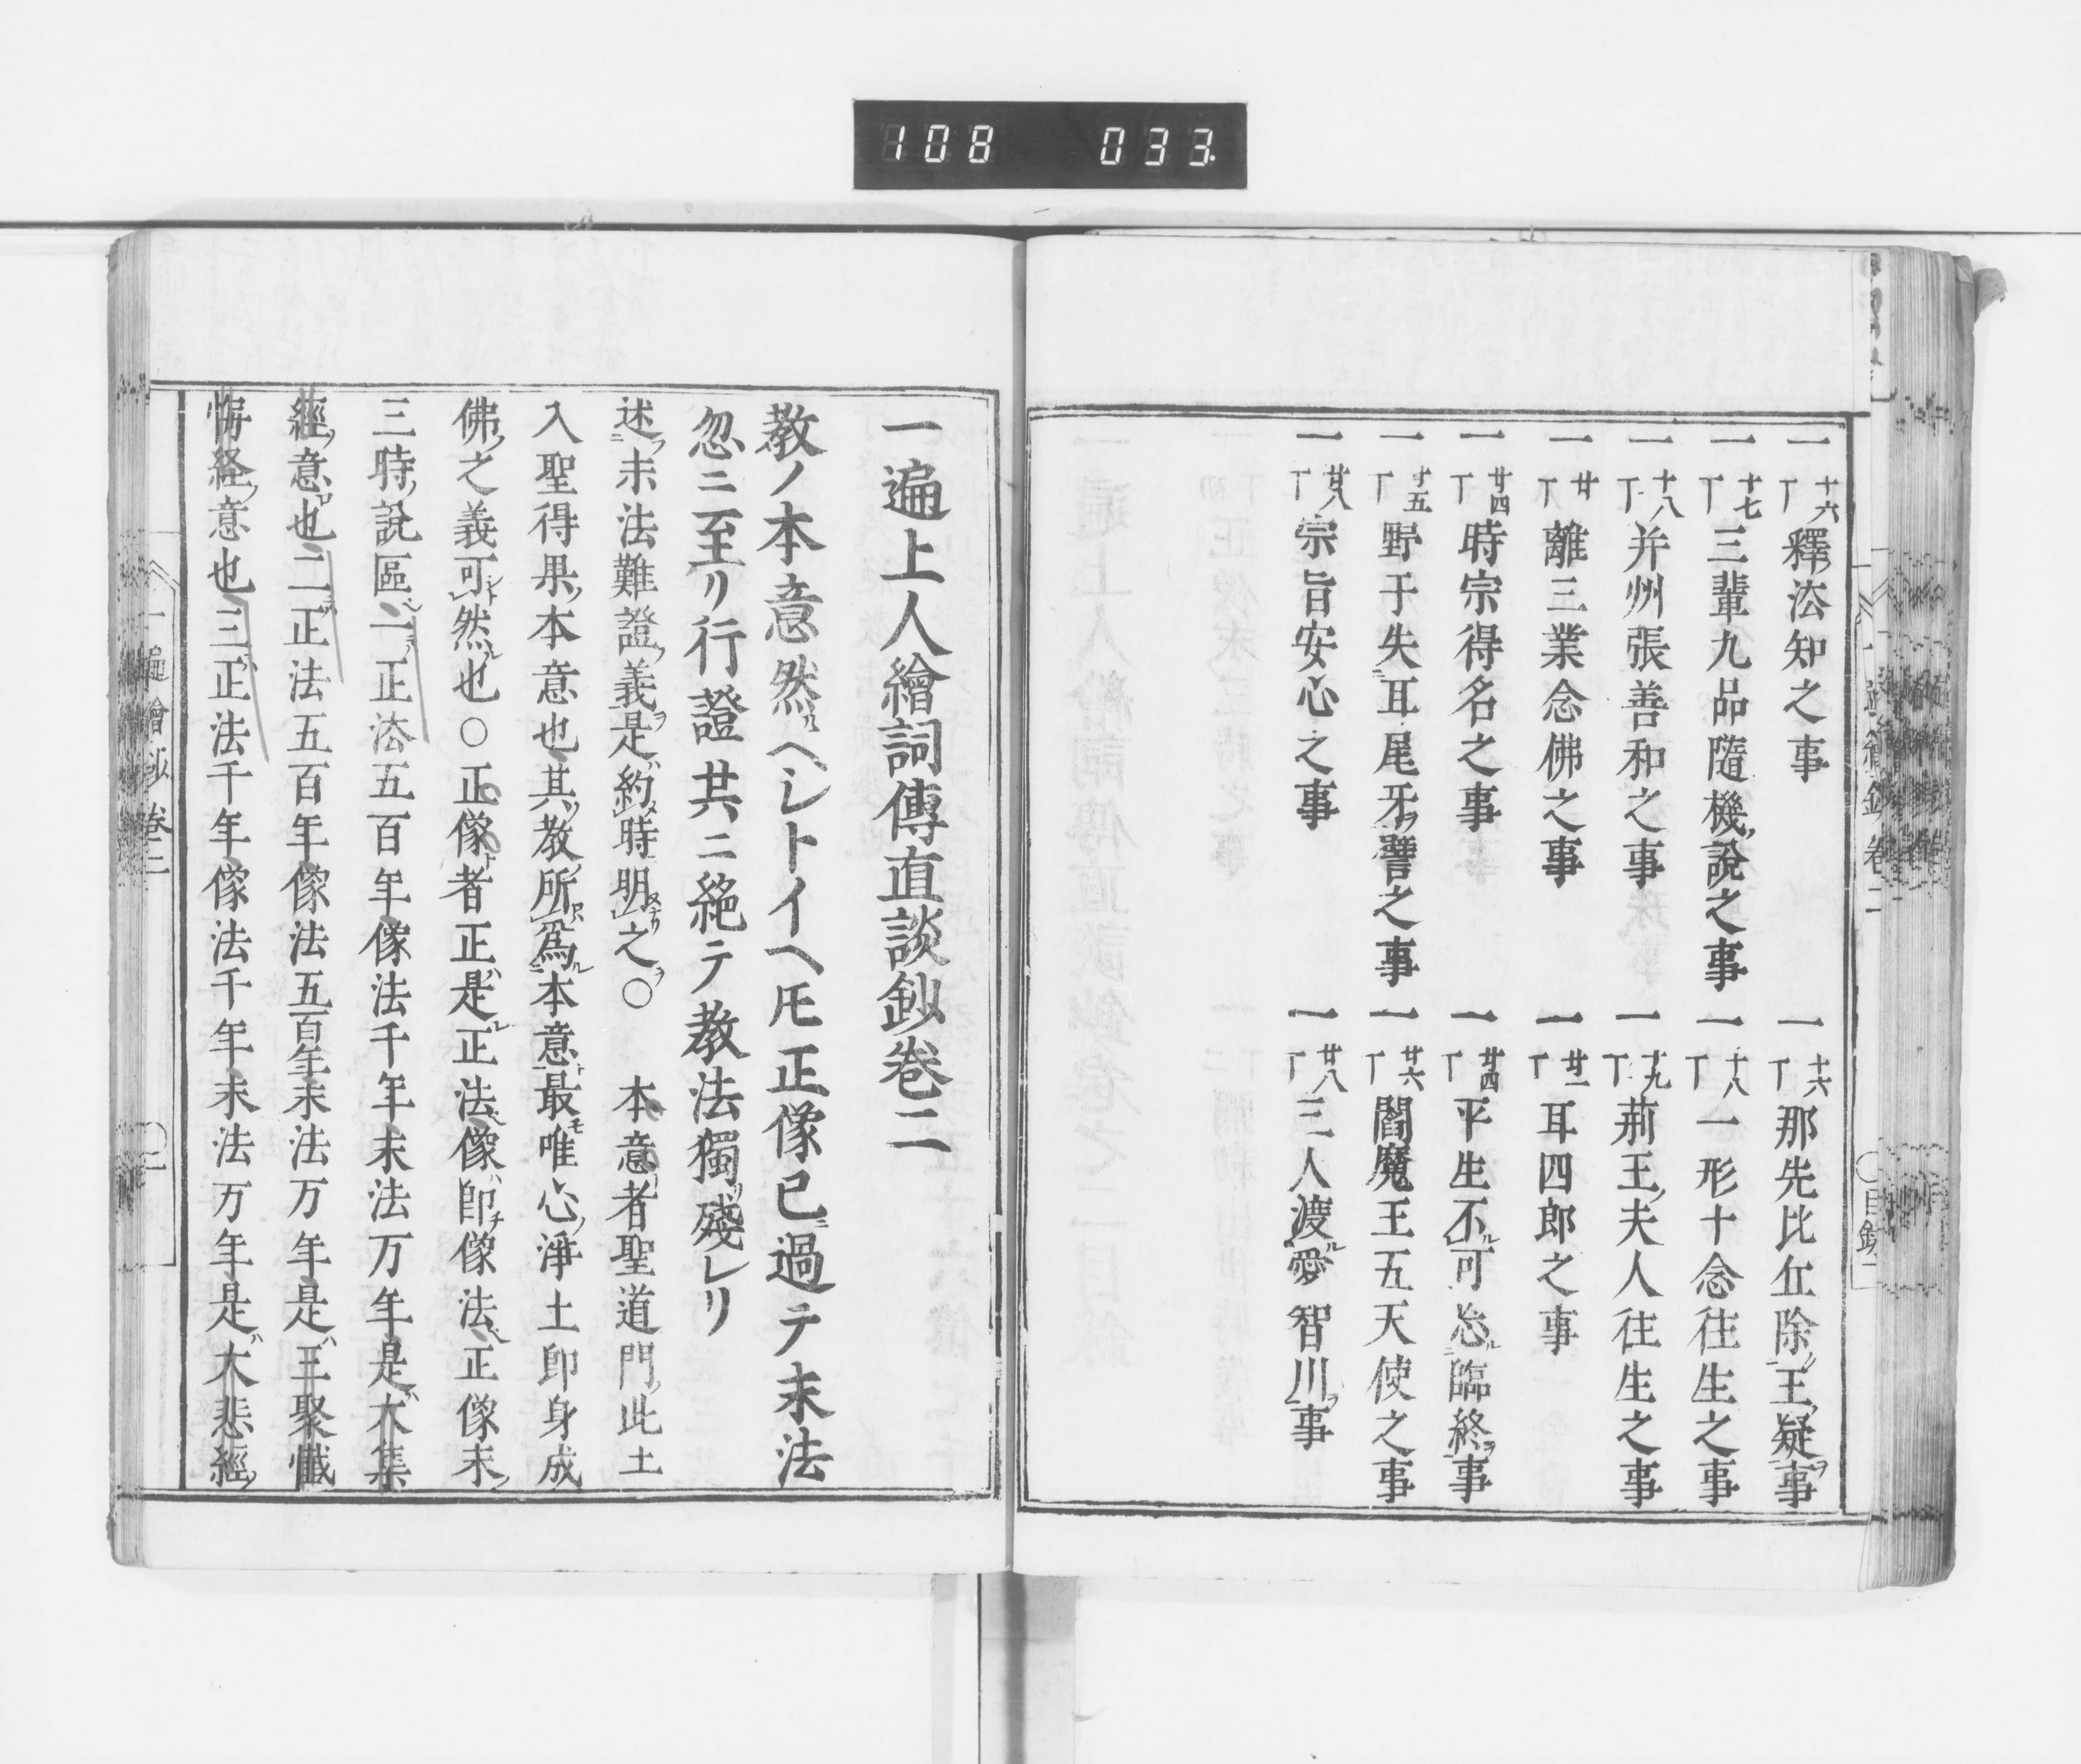 108 033
一 十六丁 釋法知之事
一 十六丁 那先比丘除王疑事
一 十七丁 三輩九品隨機說之事
一 十八丁 一形十念往生之事
一 十八丁 并州張善和之事
一 十九丁 荊王夫人往生之事
一 廿丁 離三業念佛之事
一 廿一丁 耳四郎之事
一 廿四丁 時宗得名之事
一 廿四丁 平生不可忽臨終事
一 十五丁 野干失耳尾牙譬之事
一 廿六丁 閻魔王五天使之事
一 廿八丁 宗旨安心之事
一 廿八丁 三人渡愛智川事
一遍上人繪詞傳直談鈔巻二
教ノ本意然ルヘシトイヘ𪜈正像已ニ過テ末法
忽ニ至リ行證共ニ絶テ教法獨殘レリ
述末法難證義是約時明之○ 本意者聖道門此土
入聖得果本意也其教所爲本意最唯心淨土即身成
佛之義可然也○正像者正是正法像即像法正像末
三時說區一正法五百年像法千年末法万年是大集
經意也二正法五百年像法五百年末法万年是三聚懺
悔経意也三正法千年像法千年末法万年是大悲經
一遍繪抄 巻二 〇一